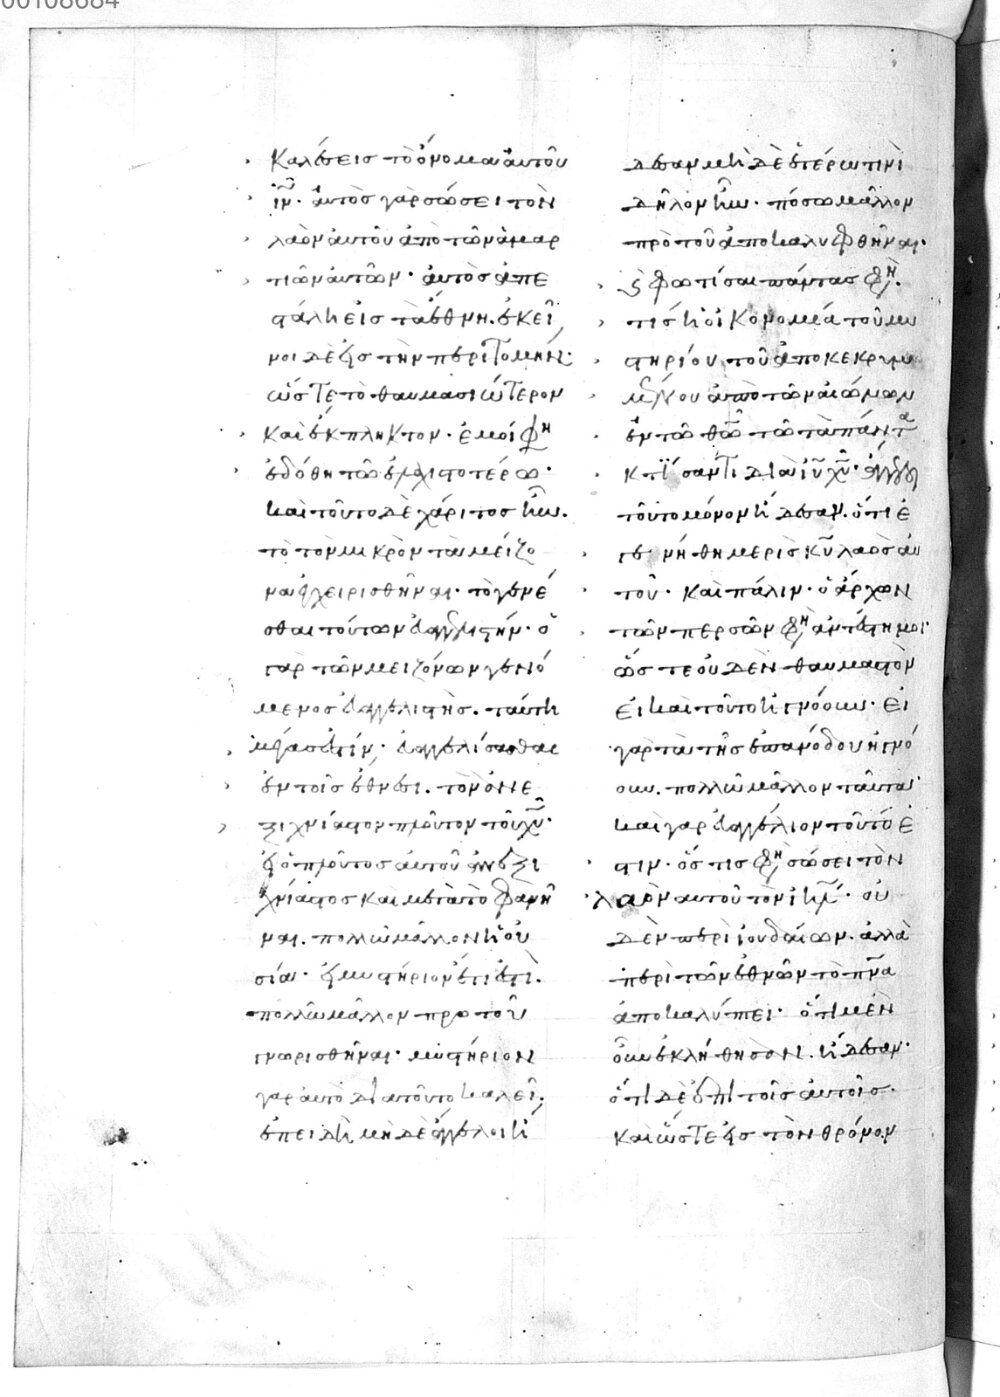 00108684
καλέσεις τὸ ὄνομα αὐτοῦ
ἰν̅. αὐτὸς γὰρ σώσει τὸν
λαὸν αὐτοῦ ἀπὸ τῶν ἁμαρ
τιῶν αὐτῶν· αὐτὸς ἀπε
στάλη εἰς τὰ ἔθνη. ἐκεῖ
νοι δὲ εἰς τὴν περιτομήν·
ὥστε τὸ θαυμασιώτερον
καὶ ἔκπληκτον. ἐμοί φη
ἐδόθη τῶ ἐλαχιστοτέρω·
καὶ τοῦτο δὲ χάριτος ἦν.
τὸ τὸν μικρὸν τὰ μείζο
να ἐγχειρισθῆναι· τὸ γενέ
σθαι τούτων εὐαγγελιστήν· ὁ
γὰρ τῶν μειζόνων γενό
μενος εὐαγγελιστὴς. ταύτη
μέγας ἐστίν· εὐαγγελίσασθαι
ἐν τοῖς ἔθνεσι. τὸν ἀνε
ξιχνίαστον πλοῦτον τοῦ χυ̅·
εἰ ὁ πλοῦτος αὐτοῦ ἀνεξι
χνίαστος καὶ μετὰ τὸ φανῆ
ναι. πολλῶ μᾶλλον ἡ οὐ
σία· εἰ μυστήριον ἔτι ἐστὶ.
πολλῶ μᾶλλον πρὸ τοῦ
γνωρισθῆναι· μυστήριον
γὰρ αὐτὸ διὰ τοῦτο καλεῖ,
ἐπειδὴ μηδὲ ἄγγελοι ἤ
δεσαν μηδὲ ἑτέρω τινὶ
δῆλον ἦν· πόσω μᾶλλον
πρὸ τοῦ ἀποκαλυφθῆναι·
ϗ φωτίσαι πάντας φη.
τίς ἡ οἰκονομία τοῦ μυ
στηρίου τοῦ ἀποκεκρυμ
μένου ἀπὸ τῶν αἰώνων
ἐν τῶ θῶ τῶ τὰ πάντα
κτίσαντι διὰ ἰυ̅ χυ̅· ἄγγελοι
τοῦτο μόνον ἤδεσαν. ὅτι ἐ
γενήθη μερὶς κυ̅ λαὸς αὐ
τοῦ· καὶ πάλιν· ὁ ἄρχων
τῶν περσῶν φη ἀντέστη μοι·
ὥστε οὐδὲν θαυμαστὸν
εἰ καὶ τοῦτο ἠγνόουν· εἰ
γὰρ τὰ τῆς ἐπανόδου ἠγνό
ουν. πολλῶ μᾶλλον ταῦτα·
καὶ γὰρ εὐαγγέλιον τοῦτό ἐ
στιν. ὅς τις φη σώσει τὸν
λαὸν αὐτοῦ τὸν ἰηλ̅· οὐ
δὲν περὶ ἰουδαίων. ἀλλὰ
περὶ τῶν ἐθνῶν τὸ πνα̅
ἀποκαλύπτει· ὅτι μὲν
οὖν ἐκλήθησαν. ἤδεσαν·
ὅτι δὲ ἐπὶ τοῖς αὐτοῖς.
καὶ ὥστε εἰς τὸν θρόνον